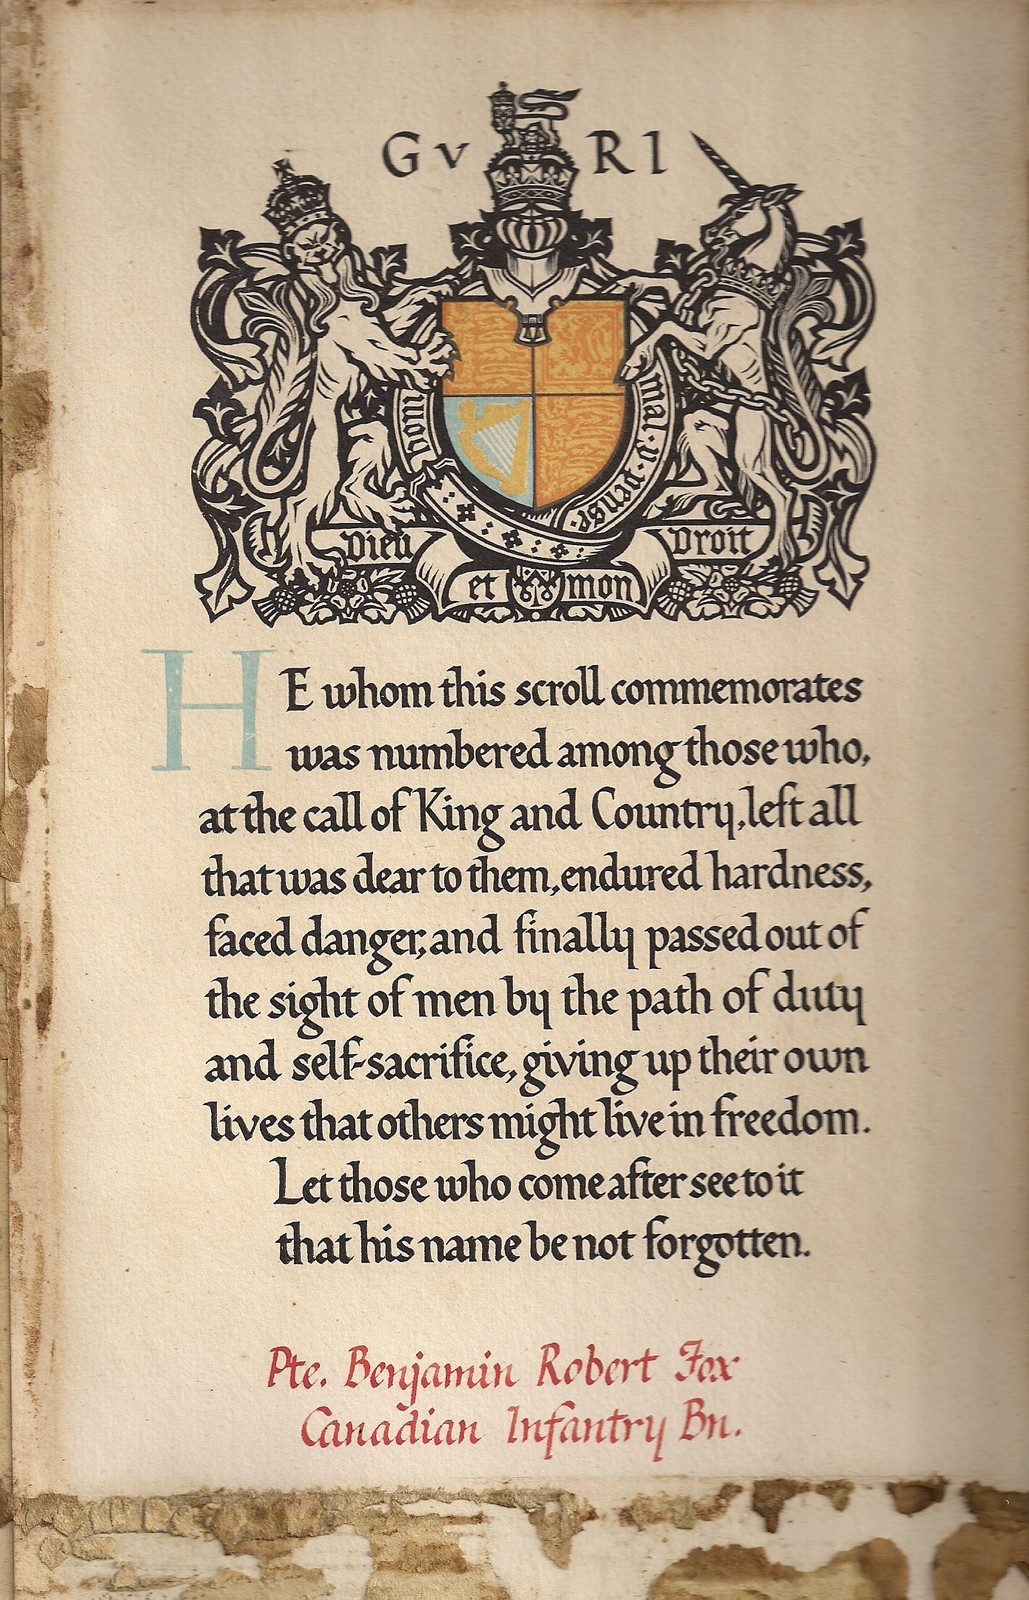 GV RI
honi mal·y·pense·
Dieu Droit
et mon
HE whom this scroll commemorates
was numbered among those who,
at the call of King and Country, left all
that was dear to them, endured hardness,
faced danger, and finally passed out of
the sight of men by the path of duty
and self-sacrifice, giving up their own
lives that others might live in freedom.
Let those who come after see to it
that his name be not forgotten.
Pte. Benjamin Robert Fox
Canadian Infantry Bn.